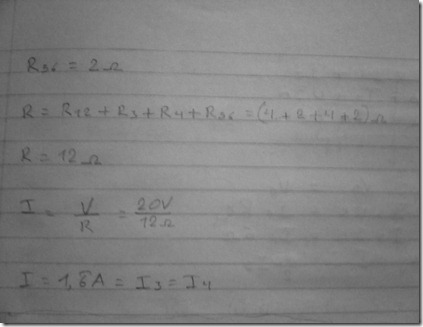 R56 = 2Ω
R = R12 + R3 + R4 + R56 = (4 + 2 + 4 + 2)Ω
R = 12Ω
I = V/R = 20V/12Ω
I = 1,6A = I3 = I4